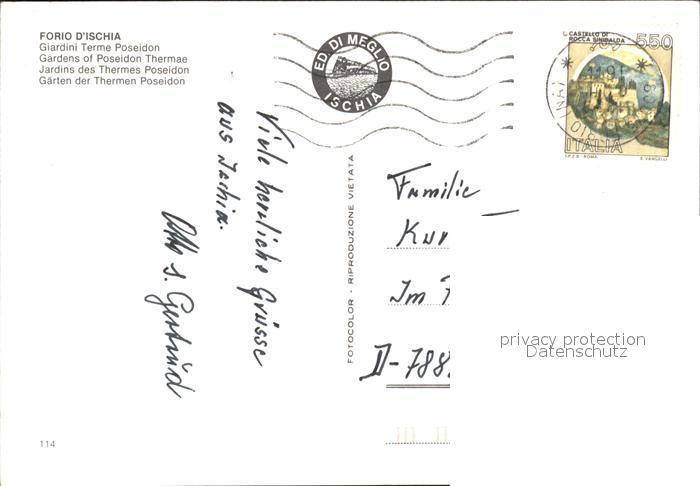 FORIO D'ISCHIA
Giardini Terme Poseidon
Gardens of Poseidon Thermae
Jardins des Thermes Poseidon
Gärten der Thermen Poseidon
ED. DI MEGLIO
ISCHIA
CASTELLO DI
ROCCA SINIBALDA
550
ITALIA
I.P.Z.S. - ROMA
E. VANGELLI
Viele herzliche Grüsse
aus Ischia.
Otto u. Gertrud
FOTOCOLOR - RIPRODUZIONE VIETATA
Familie
Kur
Im
D-788
privacy protection
Datenschutz
114